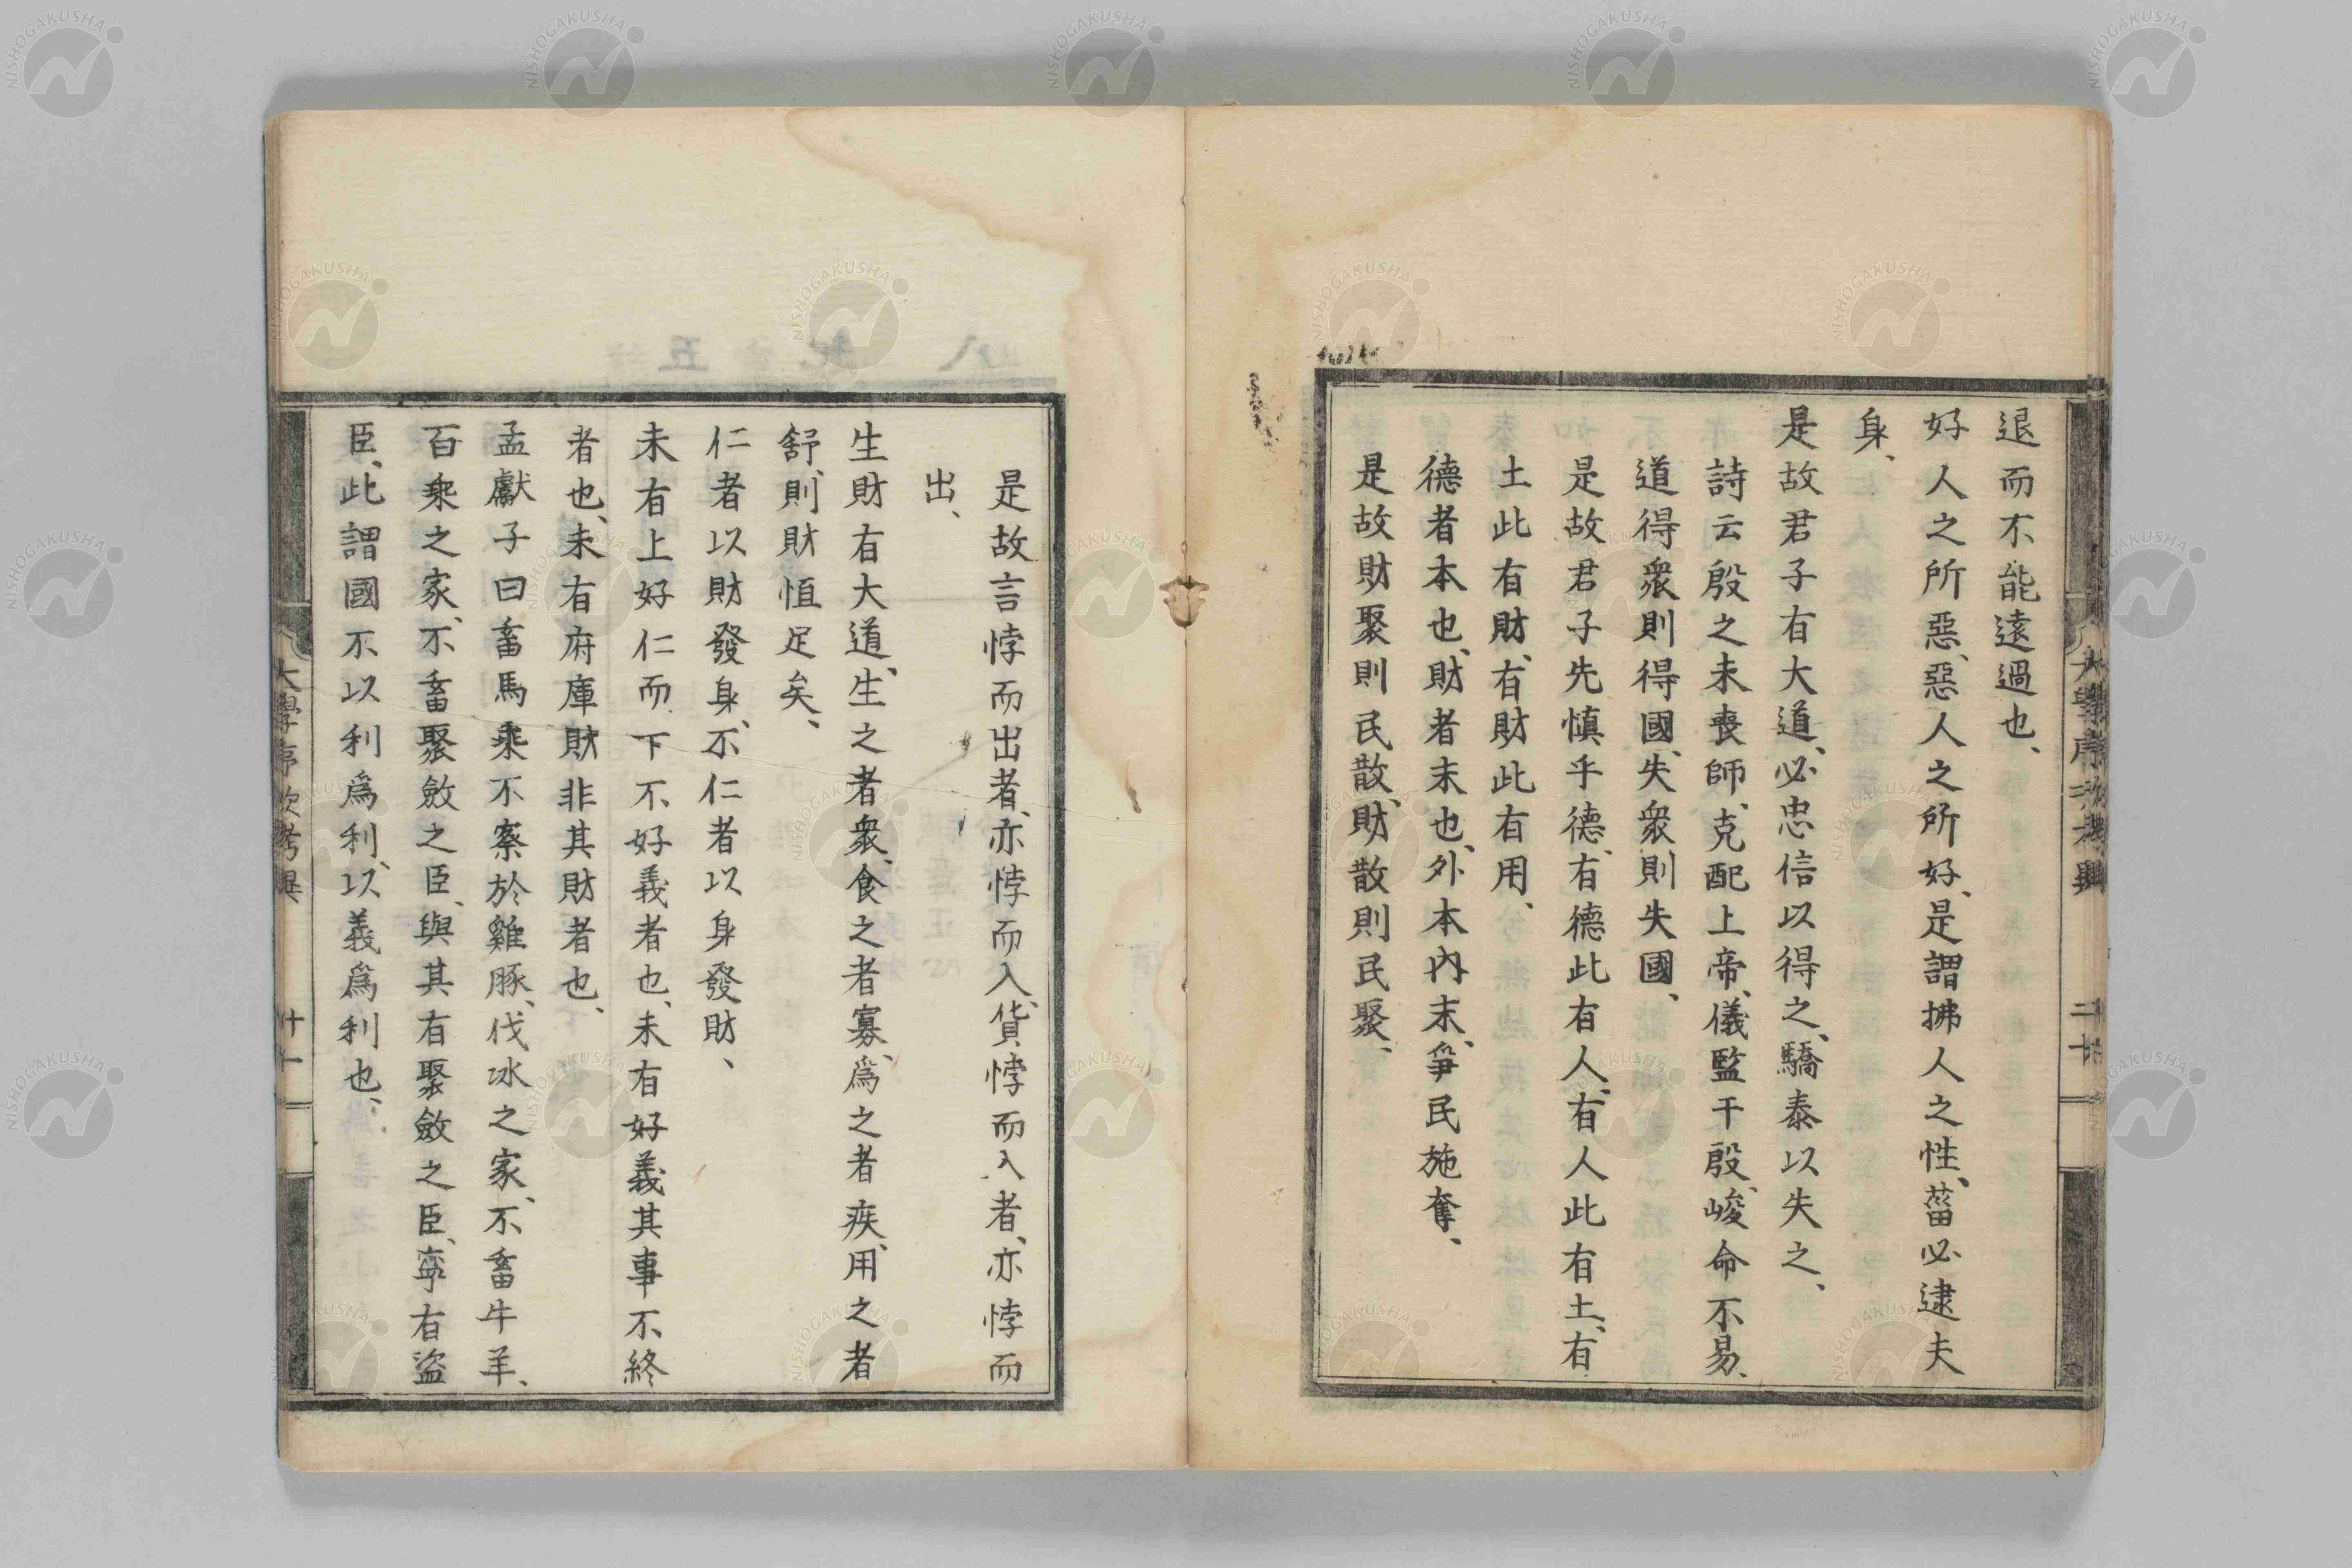 退而不能遠過也、
好人之所惡、惡人之所好、是謂拂人之性、菑必逮夫
身、
是故君子有大道、必忠信以得之、驕泰以失之、
詩云殷之未喪師、克配上帝、儀監于殷、峻命不易、
道得衆則得國、失衆則失國、
是故君子先慎乎德、有德此有人、有人此有土、有
土此有財、有財此有用、
德者本也、財者末也、外本內末、爭民施奪、
是故財聚則民散、財散則民聚、
是故言悖而出者、亦悖而入、貨悖而入者、亦悖而
出、
生財有大道、生之者衆、食之者寡、爲之者疾、用之者
舒、則財恒足矣、
仁者以財發身、不仁者以身發財、
未有上好仁而下不好義者也、未有好義其事不終
者也、未有府庫財非其財者也、
孟獻子曰畜馬乘不察於雞豚、伐冰之家、不畜牛羊、
百乘之家、不畜聚斂之臣、與其有聚斂之臣、寧有盜
臣、此謂國不以利爲利、以義爲利也、
大學序次考異
二十
NISHOGAKUSHA